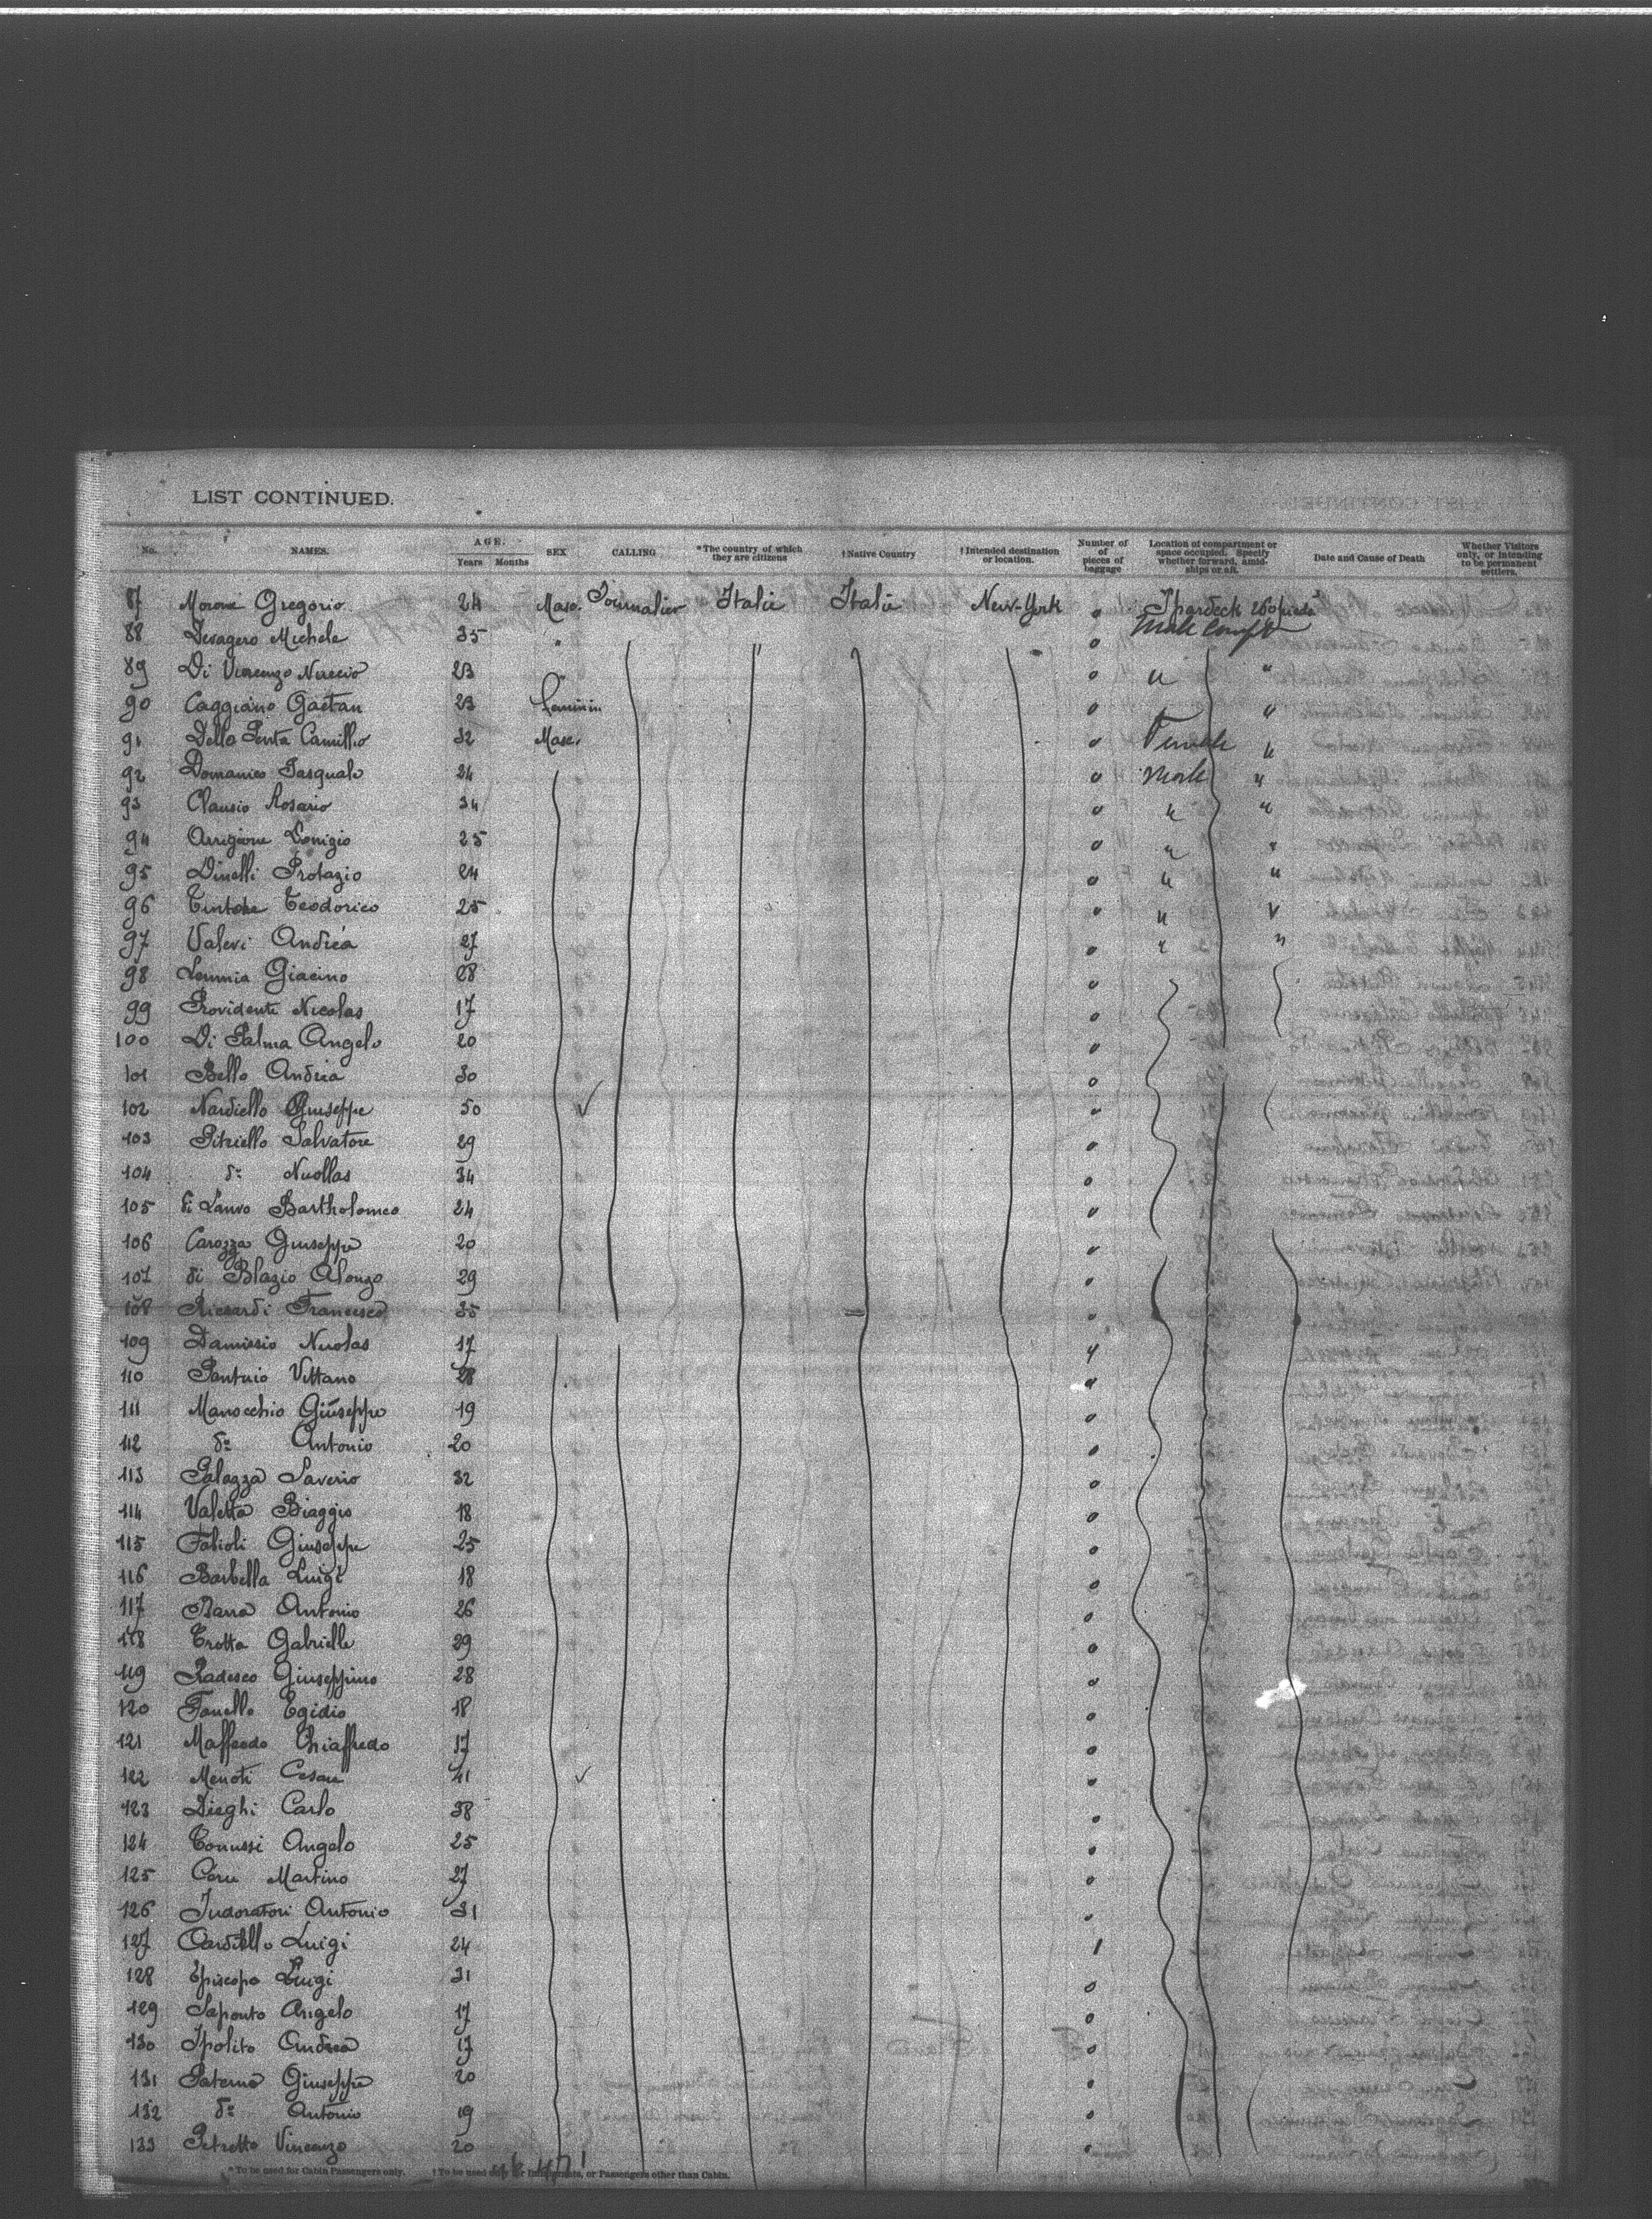 LIST CONTINUED.
No. NAMES. AGE. Years Months SEX CALLING *The country of which they are citizens †Native Country †Intended destination or location. Number of pieces of baggage Location of compartment or space occupied. Specify whether forward, amidships or aft. Date and Cause of Death Whether Visitors only, or intending to be permanent settlers.
87 Morone Gregorio 24 Masc. Journalier Italie Italie New-York 0 Spardeck
88 Desagero Michele 35 " 0 Male Compt
89 Di Vincenzo 23 " 0 " "
90 Caggiano Gaetan 23 feminin 0 "
91 Della Penta Camillo 32 Masc. 0 Female "
92 Domanico Pasquale 24 0 Male "
93 Clausio Rosario 34 0 " "
94 Arrigione 25 0 " "
95 Dinelli Protazio 24 0 " "
96 Teodorico 25 0 " "
97 Valevi Andréa 27 0 " "
98 Lemmia Giacino 28 0
99 Providente Nicolas 17 0
100 Di Palma Angelo 20 0
101 Bello Andréa 30 0
102 Nardiello Giuseppe 50 0
103 Pitriello Salvatore 29 0
104 do Nicollas 34 0
105 di Lauro Bartholomeo 24 0
106 Carozza Giuseppe 20 0
107 di Blazio Alonzo 29 0
108 Riccardi Francesco 35 0
109 Damissio Nicolas 17
110 Pantuio Vittano 28 0
111 Manocchio Giuseppe 19 0
112 do Antonio 20 0
113 Palazza Saverio 32 0
114 Valetta Biaggio 18 0
115 Fabioli Giuseppe 25 0
116 Barbella Luigi 18 0
117 Barra Antonio 26 0
118 Trotta Gabrielle 29 0
119 Radesco Giuseppino 28 0
120 Fanello Egidio 18 0
121 Maffeodo Chiaffredo 17 0
122 Menoti Cesare 41 0
123 Dieghi Carlo 38 0
124 Conussi Angelo 25 0
125 Martino 27 0
126 Indoratori Antonio 31 0
127 Cardillo Luigi 24 1
128 Episcopo Luigi 31 0
129 Saponto Angelo 17 0
130 Ipolito Andrea 17 0
131 Paterno Giuseppe 20 0
132 do Antonio 19 0
133 Petretto Vincenzo 20 0
*To be used for Cabin Passengers only. †To be used only for Immigrants, or Passengers other than Cabin.